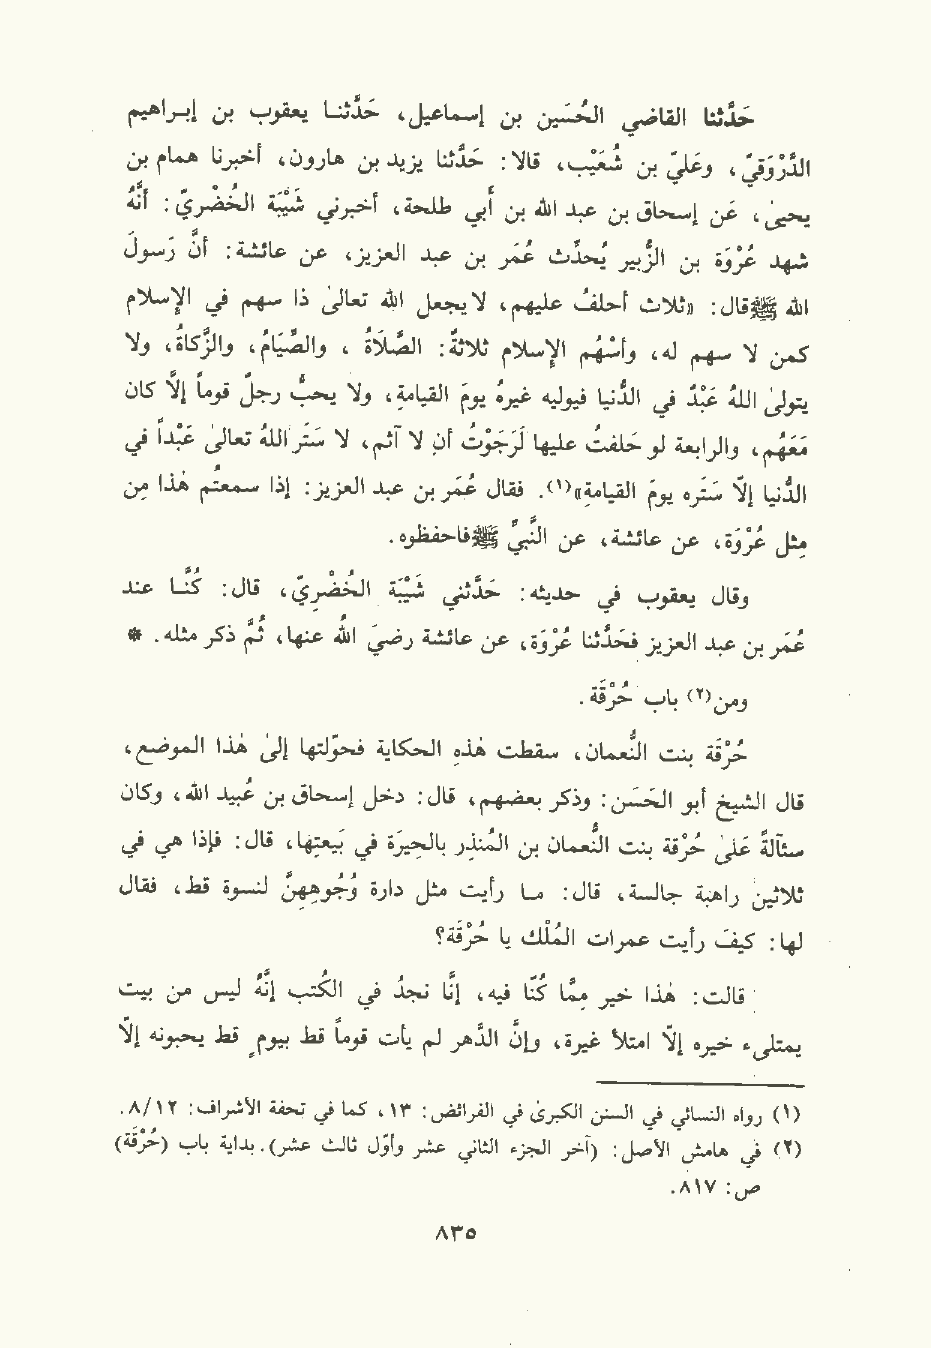 حَدَّثنا القاضي الحُسَين بن إسماعيل، حَدَّثنا يعقوب بن إبراهيم
الدَّرْوَقيّ، وعَليّ بن شُعَيْب، قالا: حَدَّثنا يزيد بن هارون، أخبرنا همام بن
يحيىٰ، عَن إسحاق بن عبد الله بن أبي طلحة، أخبرني شَيْبَة الخُضْريّ: أنَّهُ
شهد عُرْوَة بن الزُّبير يُحدِّث عُمَر بن عبد العزيز، عن عائشة: أن رَسولَ
الله ﷺقال: «ثلاث أحلفُ عليهم، لا يجعل الله تعالىٰ ذا سهم في الإسلام
كمن لا سهم له، وأسْهُم الإسلام ثلاثةٌ: الصَّلاةُ، والصِّيَامُ، والزَّكاةُ، ولا
يتولىٰ اللهُ عَبْدٌ في الدُّنيا فيوليه غيرهُ يومَ القيامة، ولا يحبُّ رجلٌ قوماً إلَّا كان
مَعَهُم، والرابعة لو حلفتُ عليها لَرَجَوْتُ أن لا آثم، لا سَتَر اللهُ تعالىٰ عَبْداً في
الدُّنيا إلَّا سَتَره يومَ القيامةِ»(١). فقال عُمَر بن عبد العزيز: إذا سمعتُم هذا مِن
مِثل عُرْوَة، عن عائشة، عن النَّبيِّ ﷺفاحفظوه.
وقال يعقوب في حديثه: حَدَّثني شَيْبَة الخُضْريّ، قال: كُنَّا عند
عُمَر بن عبد العزيز فحَدثنا عُرْوَة، عن عائشة رضيَ اللهُ عنها، ثُمَّ ذكر مثله. *
ومن(٢) باب حُرْقَة.
حُرْقَة بنت النُّعمان، سقطت هذه الحكاية فحوّلتها إلىٰ هٰذا الموضع،
قال الشيخ أبو الحَسَن: وذكر بعضهم، قال: دخل إسحاق بن عُبيد الله، وكان
سئآلةً علىٰ حُرْقة بنت النُّعمان بن المُنذر بالحِيرَة في بَيعتِها، قال: فإذا هي في
ثلاثين راهبة جالسة، قال: ما رأيت مثل دارة وُجُوههنَّ لنسوة قط، فقال
لها: كيفَ رأيت عمرات المُلْك يا حُرْقَة؟
قالت: هٰذا خير ممَّا كُنَّا فيه، إنَّا نجدُ في الكُتب إنَّهُ ليس من بيت
يمتلىء خيره إلَّا امتلأ غيره، وإنَّ الدَّهر لم يأت قوماً قط بيومٍ قط يحبونه إلَّا
(١) رواه النسائي في السنن الكبرىٰ في الفرائض: ١٣، كما في تحفة الأشراف: ٨/١٢.
(٢) في هامش الأصل: (آخر الجزء الثاني عشر وأوّل ثالث عشر). بداية باب (حُرْقَة)
ص: ٨١٧.
٨٣٥